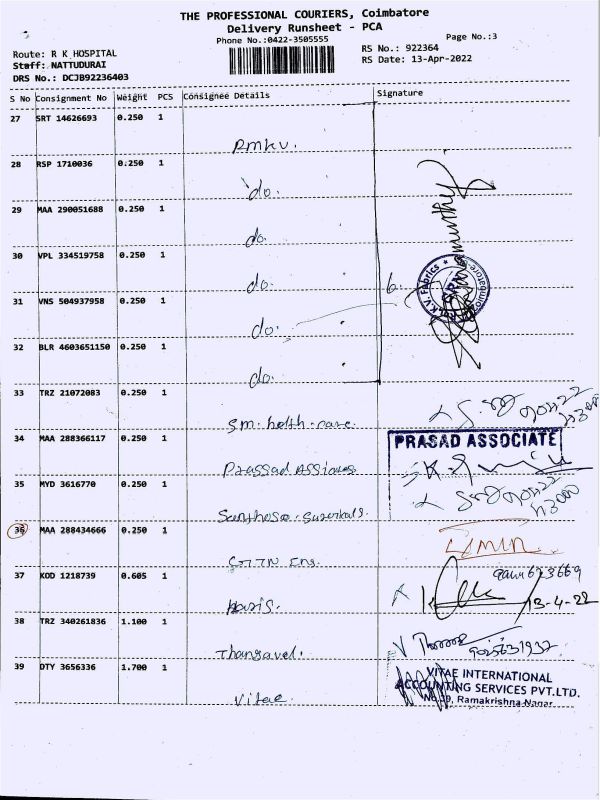 THE PROFESSIONAL COURIERS, Coimbatore
Delivery Runsheet - PCA
Phone No.:0422-3505555
Page No.:3
Route: R K HOSPITAL
RS No.: 922364
Staff: NATTUDURAI
RS Date: 13-Apr-2022
DRS No.: DCJB92236403
S No Consignment No Weight PCS Consignee Details Signature
27 SRT 14626693 0.250 1
RMKV.
28 RSP 1710036 0.250 1
do.
29 MAA 290051688 0.250 1
do.
30 VPL 334519758 0.250 1
do. 6.
R.M.K.V. Fabrics
31 VNS 504937958 0.250 1
do.
32 BLR 4603651150 0.250 1
do.
33 TRZ 21072083 0.250 1
Sm. helth. care.
34 MAA 288366117 0.250 1
PRASAD ASSOCIATE
35 MYD 3616770 0.250 1
36 MAA 288434666 0.250 1
37 KOD 1218739 0.605 1
Haris. 13-4-22
38 TRZ 340261836 1.100 1
Thangavel.
39 DTY 3656336 1.700 1
VITAE INTERNATIONAL
ACCOUNTING SERVICES PVT.LTD.
Vitae No.39, Ramakrishna Nagar